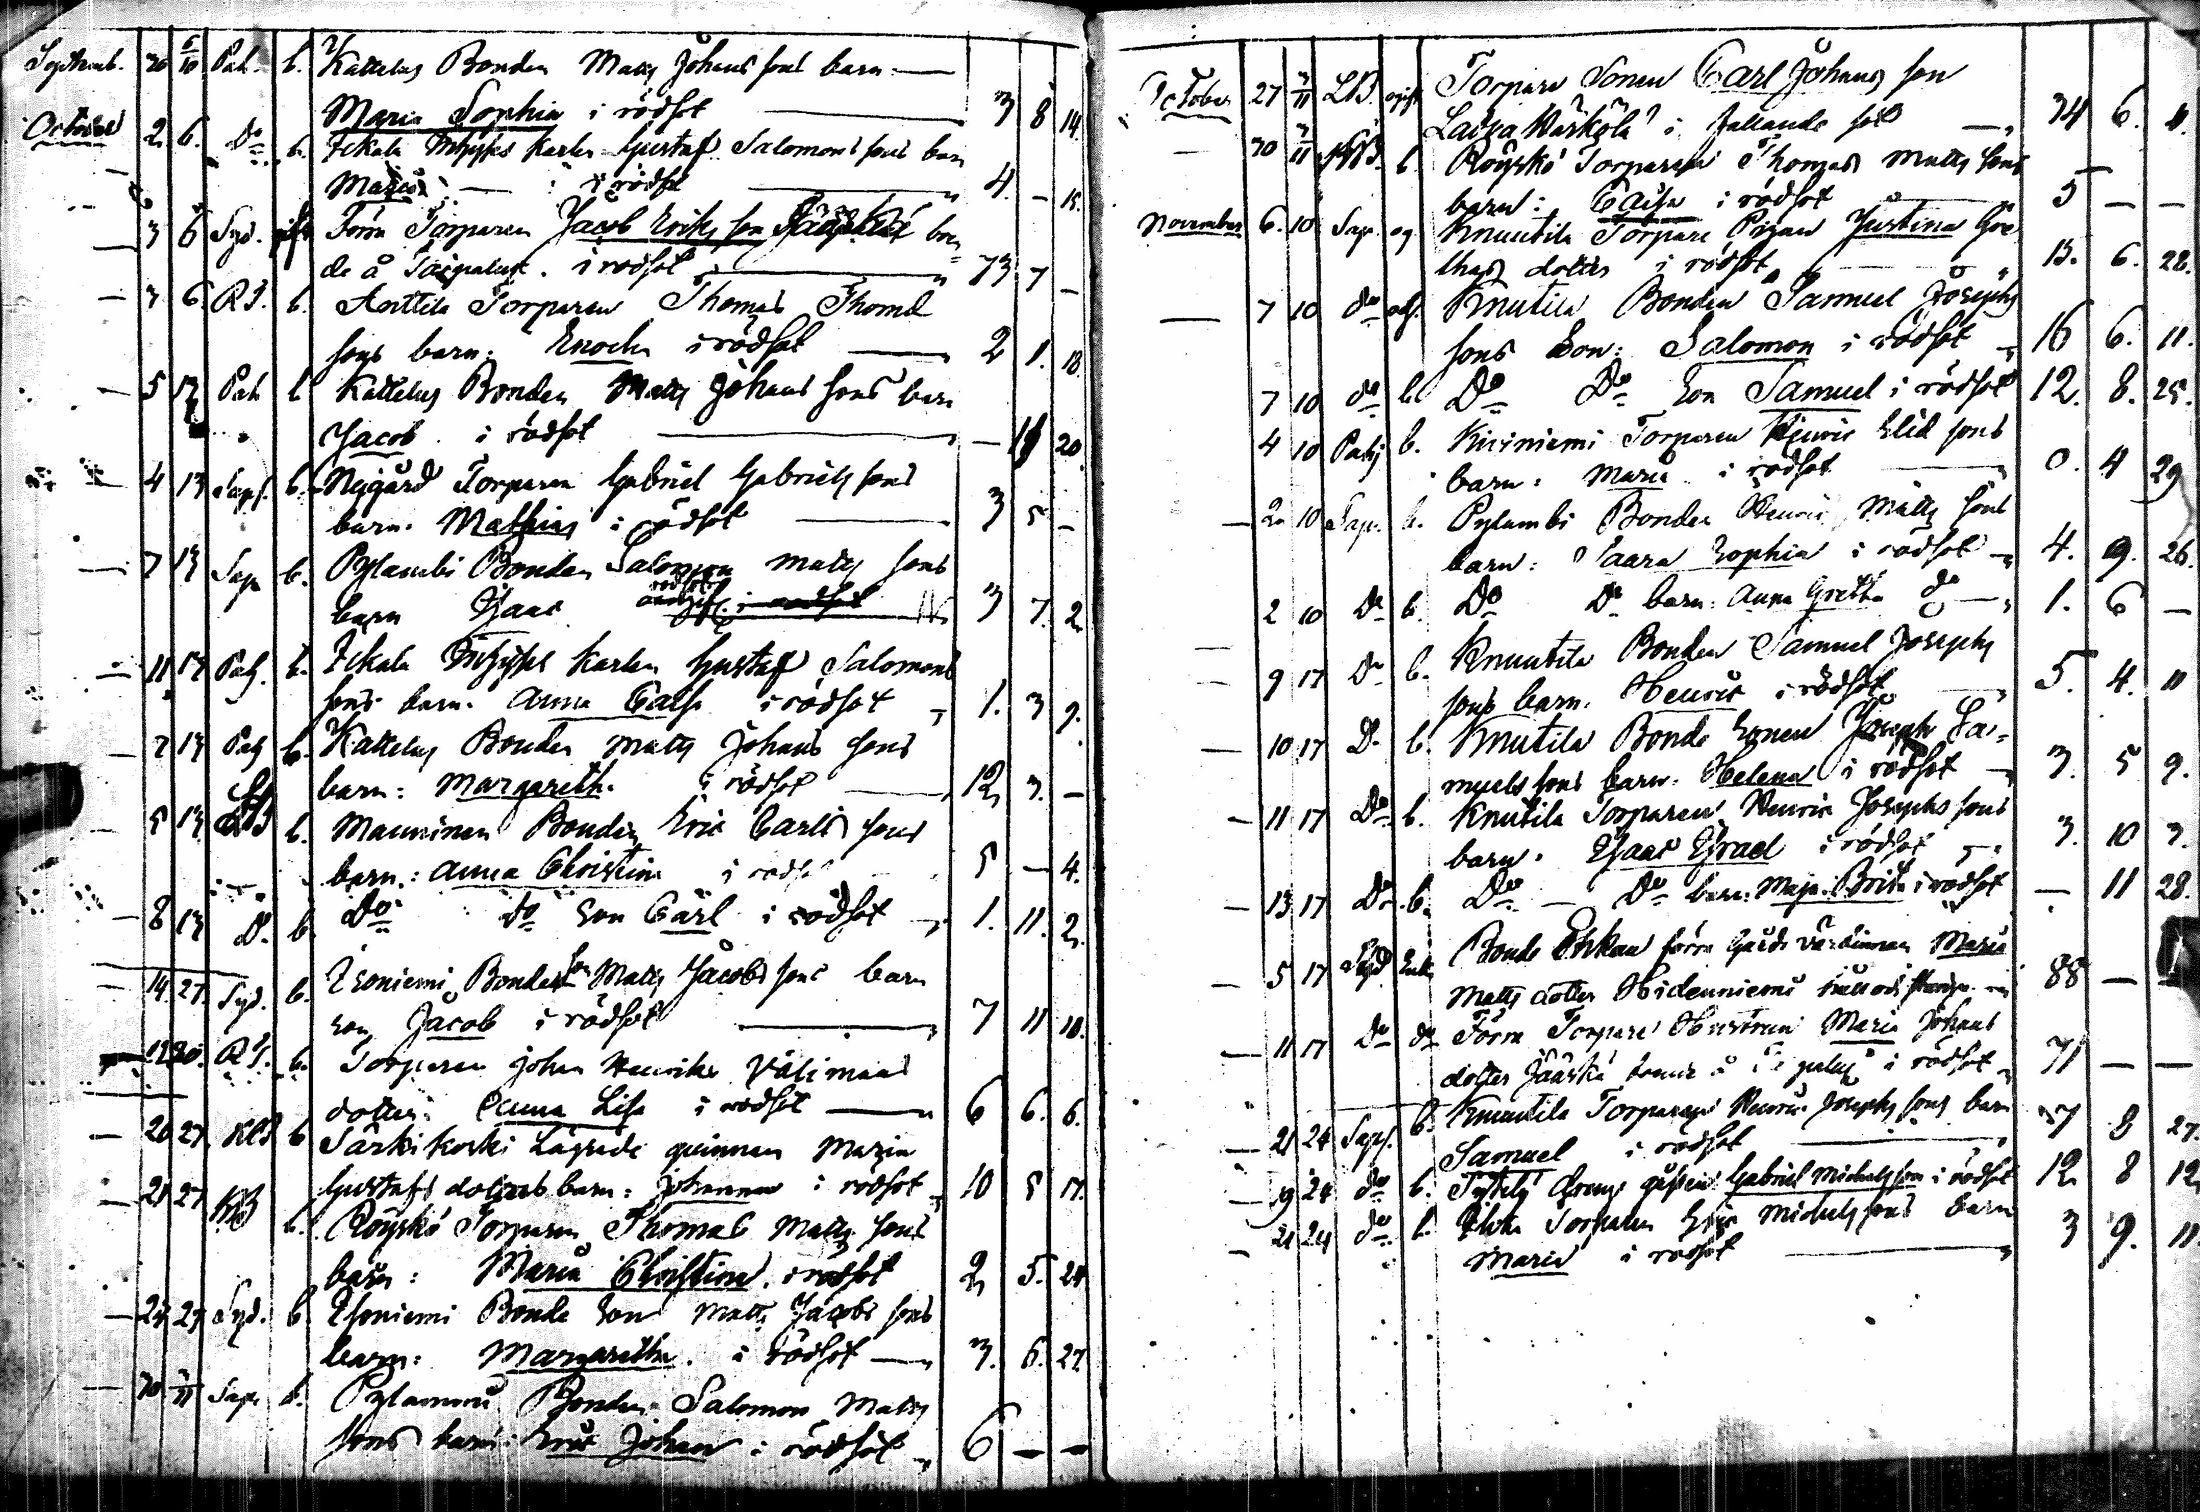 Septemb. 30 6/10 Pah. b. Kattelus Bonden Matts Johans sons barn
Maria Sophia i rödsot 3 8 14.
October 2 6. Do b. Iskala Inhyses Karlen Gustaf Salomons sons barn
Maria i rödsot 4. - 15.
3 6 Syd. gift Förra Torparen Jacob Eriks son Jääskö boen-
de å Taipalus. i rödsot 73 7 -
3 6. RI. b. Anttila Torparen Thomas Thomæ
sons barn: Enoch i rödsot 2 1. 18.
5 13 Pah b Kattelus Bonden Matts Johans sons barn
Jacob i rödsot - 20.
4 13 Saps. b. Nygård Torparen Gabriel Gabriels sons
barn. Mathias i rödsot 3 5 -
7 13 Sap b. Pylambi Bonden Salomon Matts sons
barn Isaac rödsot 3 7. 2.
11 13 Pah. b. Iskala Inhyses Karlen Gustaf Salomons
sons barn. Anna Caisa i rödsot 1. 3 9.
7 13 Pah b. Kattelus Bonden Matts Johans sons
barn: Margareth. i rödsot 12 3. -
5 13 b. Manninen Bonden Eric Carls sons
barn: Anna Christina i rödsot 5 - 4.
8 13 D. b. Do Do son Carl i rödsot 1. 11. 2.
14 27. Syd. b. Isoniemi Bonden son Matts Jacobs sons barn
son Jacob i rödsot 7 11 10.
20. RI. b. Torparen Johan Henriks Välimaas
dotter: Anna Lisa i rödsot 6 6. 6.
20 27 KB b Särkikoski Lägrade quinnan Maria
Gustafs dotters barn: Johanna i rödsot 10 5 17.
21 27 KB b. Röyskö Torparen Thomas Matts sons
barn: Maria Christina. i rödsot 2 5. 24
24 27 Syd. b. Isoniemi Bonde Son Matts Jacobs sons
barn: Margaretha. i rödsot 3. 6. 27.
30 3/11 Sap. b. Pylammi Bonden Salomon Matts
sons barn: Eric Johan i rödsot 6 - -
October 27 3/11 LB. ogift Torpare Sonen Carl Johans son
Laiha Warkola i fallande sot 34 6. 11.
30 3/11 KB. b. Röyskö Torparen Thomas Matts sons
barn: Caisa i rödsot 5 - -
November 6. 10 Sap. og Knuutila Torpare Pigan Justina Go-
thas dotter i rödsot 15. 6. 28.
7 10 do ogf. Knutila Bonden Samuel Josephs
sons Son: Salomon i rödsot 16 6. 11.
7 10 do b. Do Do Son Samuel i rödsot 12. 8. 25.
4 10 Pahj b. Kiviniemi Torparen Henric Eliæ sons
barn: Maria i rödsot 0. 4 29
2 10 Sap. b. Pylambi Bonden Henric Matts sons
barn: Saara Sophia i rödsot 4. 9. 26.
2 10 Do b. Do Do barn: Anna Gretha do 1. 6 -
9 17 Do b. Knuutila Bonden Samuel Josephs
sons barn. Henric i rödsot 5. 4. 11
10 17 D. b. Knutila Bonde Sonen Joseph Sa-
muels sons barn. Helena i rödsot 3. 5 9.
11 17 Do. b. Knutila Torparen Henric Josephs sons
barn. Isaac Israel i rödsot 3. 10 3.
13 17 Do. b. Do - Do barn: Maja Brita i rödsot - 11 28.
5 17 Syd Enk. Bonde Enkan förra Gårds värdinnan Maria
Matts dotter Hidenniemi 88 -
11 17 Do do Förra Torpare Hustrun Maria Johans
dotter Jääskö i rödsot 71 - -
21 24 Saps. b. Knuutila Torparen Henric Josephs sons barn
Samuel i rödsot 7 8 27.
19 24 do b. Gabriel Michels son i rödsot 12 8 12
21 24 do b. Torparen Eric Michels sons barn
Maria i rödsot 3 9. 11.